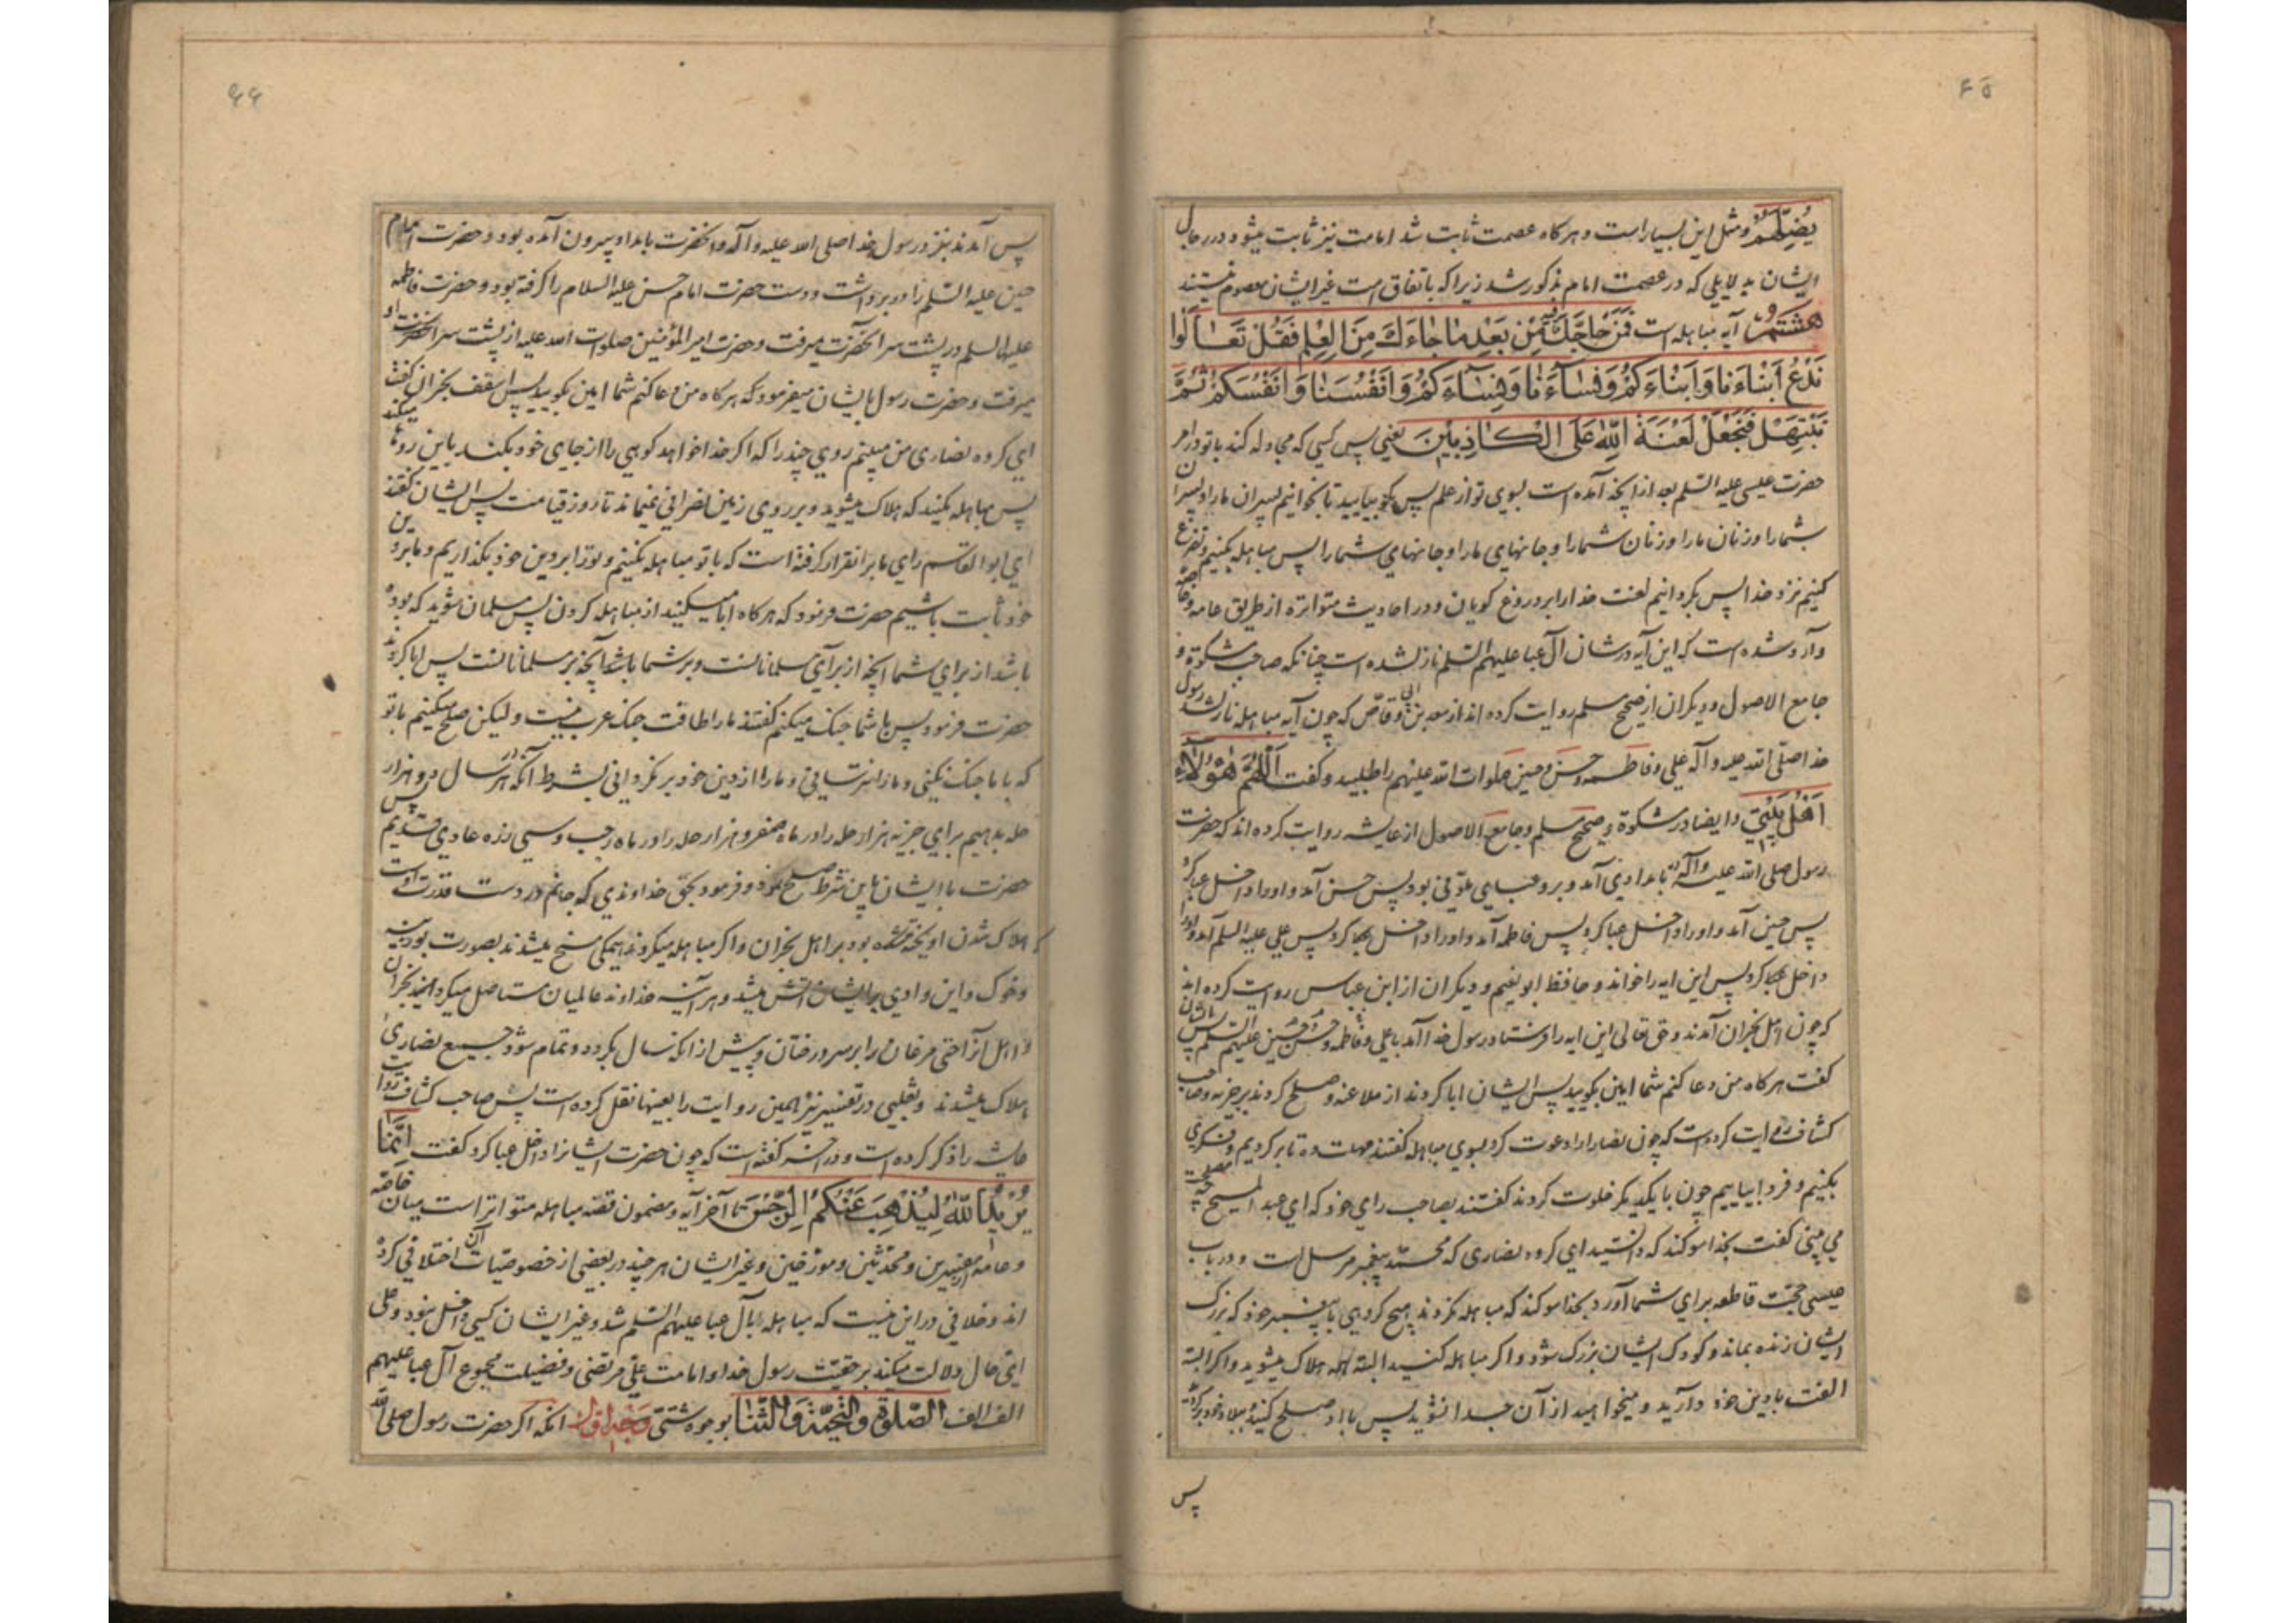 ۶۵
یُضِلَّهُم و مثل این بسیار است و هرگاه عصمت ثابت شد امامت نیز ثابت میشود در رجال
ایشان بدلایلی که در عصمت امام مذکور شد زیرا که باتفاق امت غیر ایشان معصوم نیستند
هشتم آیه مباهله است فَمَنْ حَاجَّكَ فِیهِ مِنْ بَعْدِ مَا جَاءَكَ مِنَ الْعِلْمِ فَقُلْ تَعَالَوْا
نَدْعُ اَبْنَاءَنَا وَاَبْنَاءَكُمْ وَنِسَاءَنَا وَنِسَاءَكُمْ وَاَنْفُسَنَا وَاَنْفُسَكُمْ ثُمَّ
نَبْتَهِلْ فَنَجْعَلْ لَعْنَةَ اللّٰهِ عَلَى الْكَاذِبِینَ یعنی پس کسی که مجادله کند با تو در امر
حضرت عیسی علیه السلم بعد از انچه آمده است بسوی تو از علم پس بگو بیایید تا بخوانیم پسران ما را و پسران
شما را و زنان ما را و زنان شما را و جانهای ما را و جانهای شما را پس مباهله بکنیم و تضرع
کنیم نزد خدا پس بگردانیم لعنت خدا را بر دروغ کویان و در احادیث متواتره از طریق عامه و خاصه
وارد شده است که این آیه در شان آل عبا علیهم السلم نازل شده است چنانکه صاحب مشکوة و
جامع الاصول و دیگران از صحیح مسلم روایت کرده اند از سعد بن ابی وقاص که چون آیه مباهله نازل شد رسول
خدا صلی الله علیه و آله علی و فاطمه و حسن و حسین صلوات الله علیهم را طلبید و کفت اَللّٰهُمَّ هٰؤُلَاءِ
اَهْلُ بَیْتِی و ایضا در مشکوة و صحیح مسلم و جامع الاصول از عایشه روایت کرده اند که حضرت
رسول صلی الله علیه و آله بامدادی آمد و برو عبایی بود پس حسن آمد و او را داخل عبا کرد
پس حسین آمد و او را داخل عبا کرد پس فاطمه آمد و او را داخل عبا کرد پس علی علیه السلم آمد و او را
داخل عبا کرد پس این ایه را خواند و حافظ ابو نعیم و دیگران از ابن عباس روایت کرده اند
که چون اهل نجران آمدند و حق تعالی این ایه را فرستاد رسول خدا آمد با علی و فاطمه و حسن و حسین علیهم السلم پس باشان
کفت هرگاه من دعا کنم شما امین بگویید پس ایشان ابا کردند از ملاعنه و صلح کردند بر جزیه و صاحب
کشاف روایت کرده است که چون نصارا را دعوت کرد بسوی مباهله کفتند مهلت ده تا بر کردیم و فکری
بکنیم و فردا بیاییم چون با یکدیگر خلوت کردند کفتند بصاحب رای خود که ای عبد المسیح چه مصلحت
می بینی کفت بخدا سوکند که دانستید ای کروه نصاری که محمد پیغمبر مرسل است و در باب
عیسی حجت قاطعه برای شما آورد بخدا سوکند که مباهله نکردند هیچ کروهی با پیغمبر خود که بزرک
ایشان زنده بماند و کودک ایشان بزرک شود و اکر مباهله کنید البته همه هلاک میشوید و اکر البته
الفت با دین خود دارید و میخواهید از آن جدا نشوید پس با او صلح کنید و ببلاد خود برکردید
پس
۶۶
پس آمدند بنزد رسول خدا صلی الله علیه و آله و انحضرت بامداد بیرون آمده بود و حضرت امام
حسین علیه السلم را در بر داشت و دست حضرت امام حسن علیه السلام را کرفته بود و حضرت فاطمه
علیها السلم در پشت سر انحضرت میرفت و حضرت امیر المؤمنین صلوات الله علیه از پشت سر انحضرت
میرفت و حضرت رسول بایشان میفرمود که هرگاه من دعا کنم شما امین بگویید پس اسقف نجران کفت
ای کروه نصاری من میبینم رویی چند را که اکر خدا خواهد کوهی را از جای خود بکند باین روها میکند
پس مباهله مکنید که هلاک میشوید و بر روی زمین نصرانی نمیماند تا روز قیامت پس ایشان کفتند
ای ابو القاسم رای ما بر ان قرار کرفته است که با تو مباهله نکنیم و تو را بر دین خود بگذاریم و ما بر دین
خود ثابت باشیم حضرت فرمود که هرگاه ابا میکنید از مباهله کردن پس مسلمان شوید که بوده
باشد از برای شما انچه از برای مسلمانانست و بر شما باشد انچه بر مسلمانانست پس ابا کردند
حضرت فرمود پس با شما جنک میکنم کفتند ما را طاقت جنک عرب نیست و لیکن صلح میکنیم با تو
که با ما جنک نکنی و ما را نترسانی و ما را از دین خود بر نکردانی بشرط آنکه در هر سال دو هزار
حله بدهیم برای جزیه هزار حله را در ماه صفر و هزار حله را در ماه رجب و سی زره عادی قدیم پس
حضرت با ایشان باین شرط صلح نمود و فرمود بحق خداوندی که جانم در دست قدرت اوست
که هلاک شدن اویخته شده بود بر اهل نجران و اکر مباهله میکردند همکی مسخ میشدند بصورت بوزینه
و خوک و این وادی بر ایشان اتش میشد و هر آینه خداوند عالمیان مستاصل میکردانید نجران
و اهل آنرا حتی مرغان را بر سر درختان و پیش از انکه سال بگردد و تمام شود جمیع نصاری
هلاک میشدند و ثعلبی در تفسیر نیز همین روایت را بعینها نقل کرده است پس صاحب کشاف روایت
عایشه را ذکر کرده است و در اخر کفته است که چون حضرت ایشانرا داخل عبا کرد کفت اِنَّمَا
یُرِیدُ اللّٰهُ لِیُذْهِبَ عَنْكُمُ الرِّجْسَ تا آخر آیه و مضمون قصه مباهله متواتر است میان خاصه
و عامه از مفسرین و محدثین و مورخین و غیر ایشان هر چند در بعضی از خصوصیات آن اختلافی کرده
اند و خلافی در این نیست که مباهله با آل عبا علیهم السلم شد و غیر ایشان کسی داخل نبود و علی
ای حال دلالت میکند بر حقیت رسول خدا و امامت علی مرتضی و فضیلت مجموع آل عبا علیهم
الف الف الصَّلوٰةِ وَالتَّحِیَّةِ وَالثَّنَا بوجوه شتی وجه اول انکه اکر حضرت رسول صلی الله